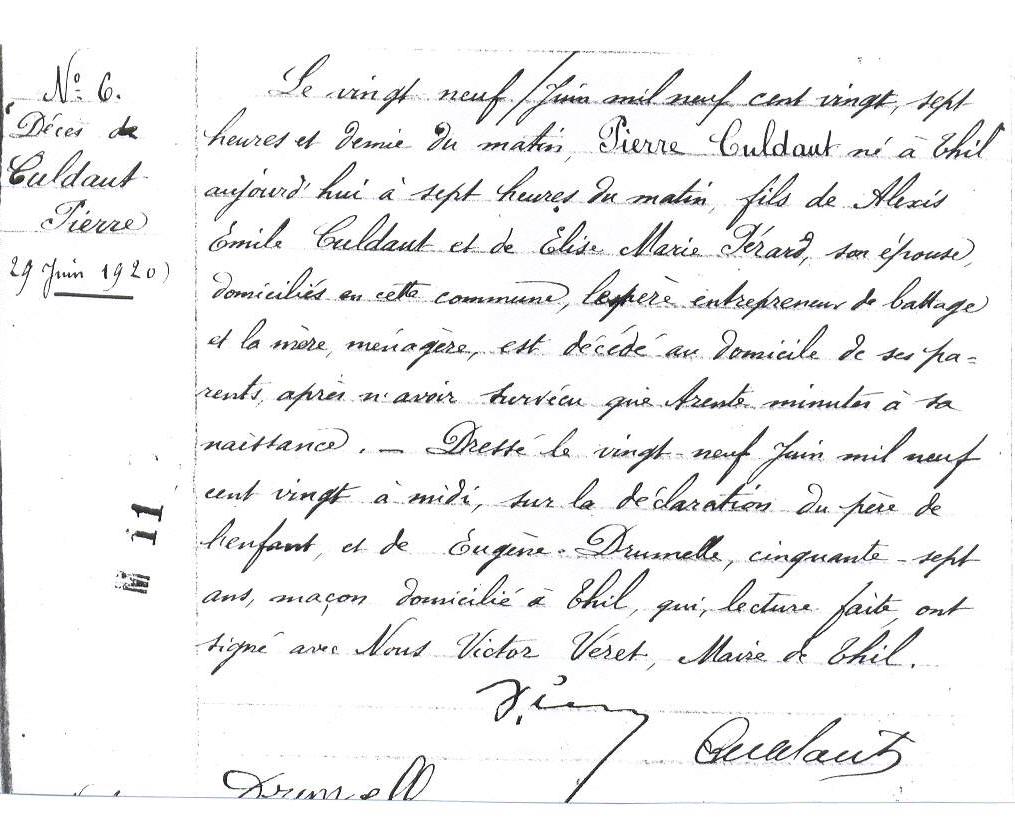 N° 6.
Décès de
Culdaut
Pierre
29 Juin 1920)
M i1
Le vingt neuf Juin mil neuf cent vingt, sept
heures et demie du matin, Pierre Culdaut né à Thil
aujourd'hui à sept heures du matin, fils de Alexis
Emile Culdaut et de Elise Marie Pérard, son épouse,
domiciliés en cette commune, le père entrepreneur de battage
et la mère, ménagère, est décédé au domicile de ses pa=
rents, après n'avoir survécu que trente minutes à sa
naissance. — Dressé le vingt-neuf Juin mil neuf
cent vingt à midi, sur la déclaration du père de
l'enfant, et de Eugène Drumelle, cinquante-sept
ans, maçon domicilié à Thil, qui, lecture faite, ont
signé avec Nous Victor Véret, Maire de Thil.
Culdaut
Drumelle